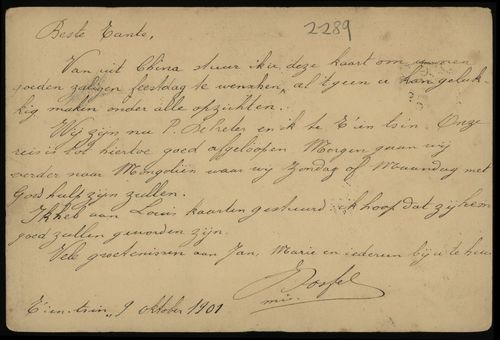 2289
Beste Tante,
Van uit China stuur ik u deze kaart om u eenen
goeden zaligen feestdag te wenschen, al 't geen u kan geluk-
kig maken onder alle opzichten.
Wij zijn nu P. De en ik te T'ien tsin. Onze
reis is tot hiertoe goed afgeloopen. Morgen gaan wij
verder naar Mongoliën waar wij Zondag of Maandag met
Gods hulp zijn zullen.
Ik heb aan Louis kaarten gestuurd: ik hoop dat zij hem
goed zullen geworden zijn.
Vele groetenissen aan Jan, Marie en iedereen bij u te huis
mis.
T'ien-tsin, 9 Oktober 1901